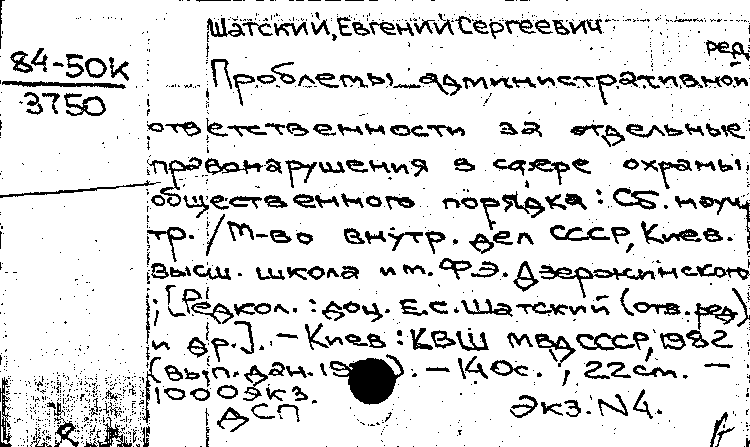 Шатский, Евгений Сергеевич
ред.
84-50к
3750
Проблемы административной
ответственности за отдельные
правонарушения в сфере охраны
общественного порядка : Сб. научн.
тр. / М-во внутр. дел СССР, Киев.
высш. школа им. Ф.Э. Дзержинского
; [Редкол. : доц. Е.С. Шатский (отв. ред.)
и др.]. - Киев : КВШ МВД СССР, 1982
(вып. дан. ). - 140 с. ; 22 см. -
1000 экз.
ДСП
Экз. N4.